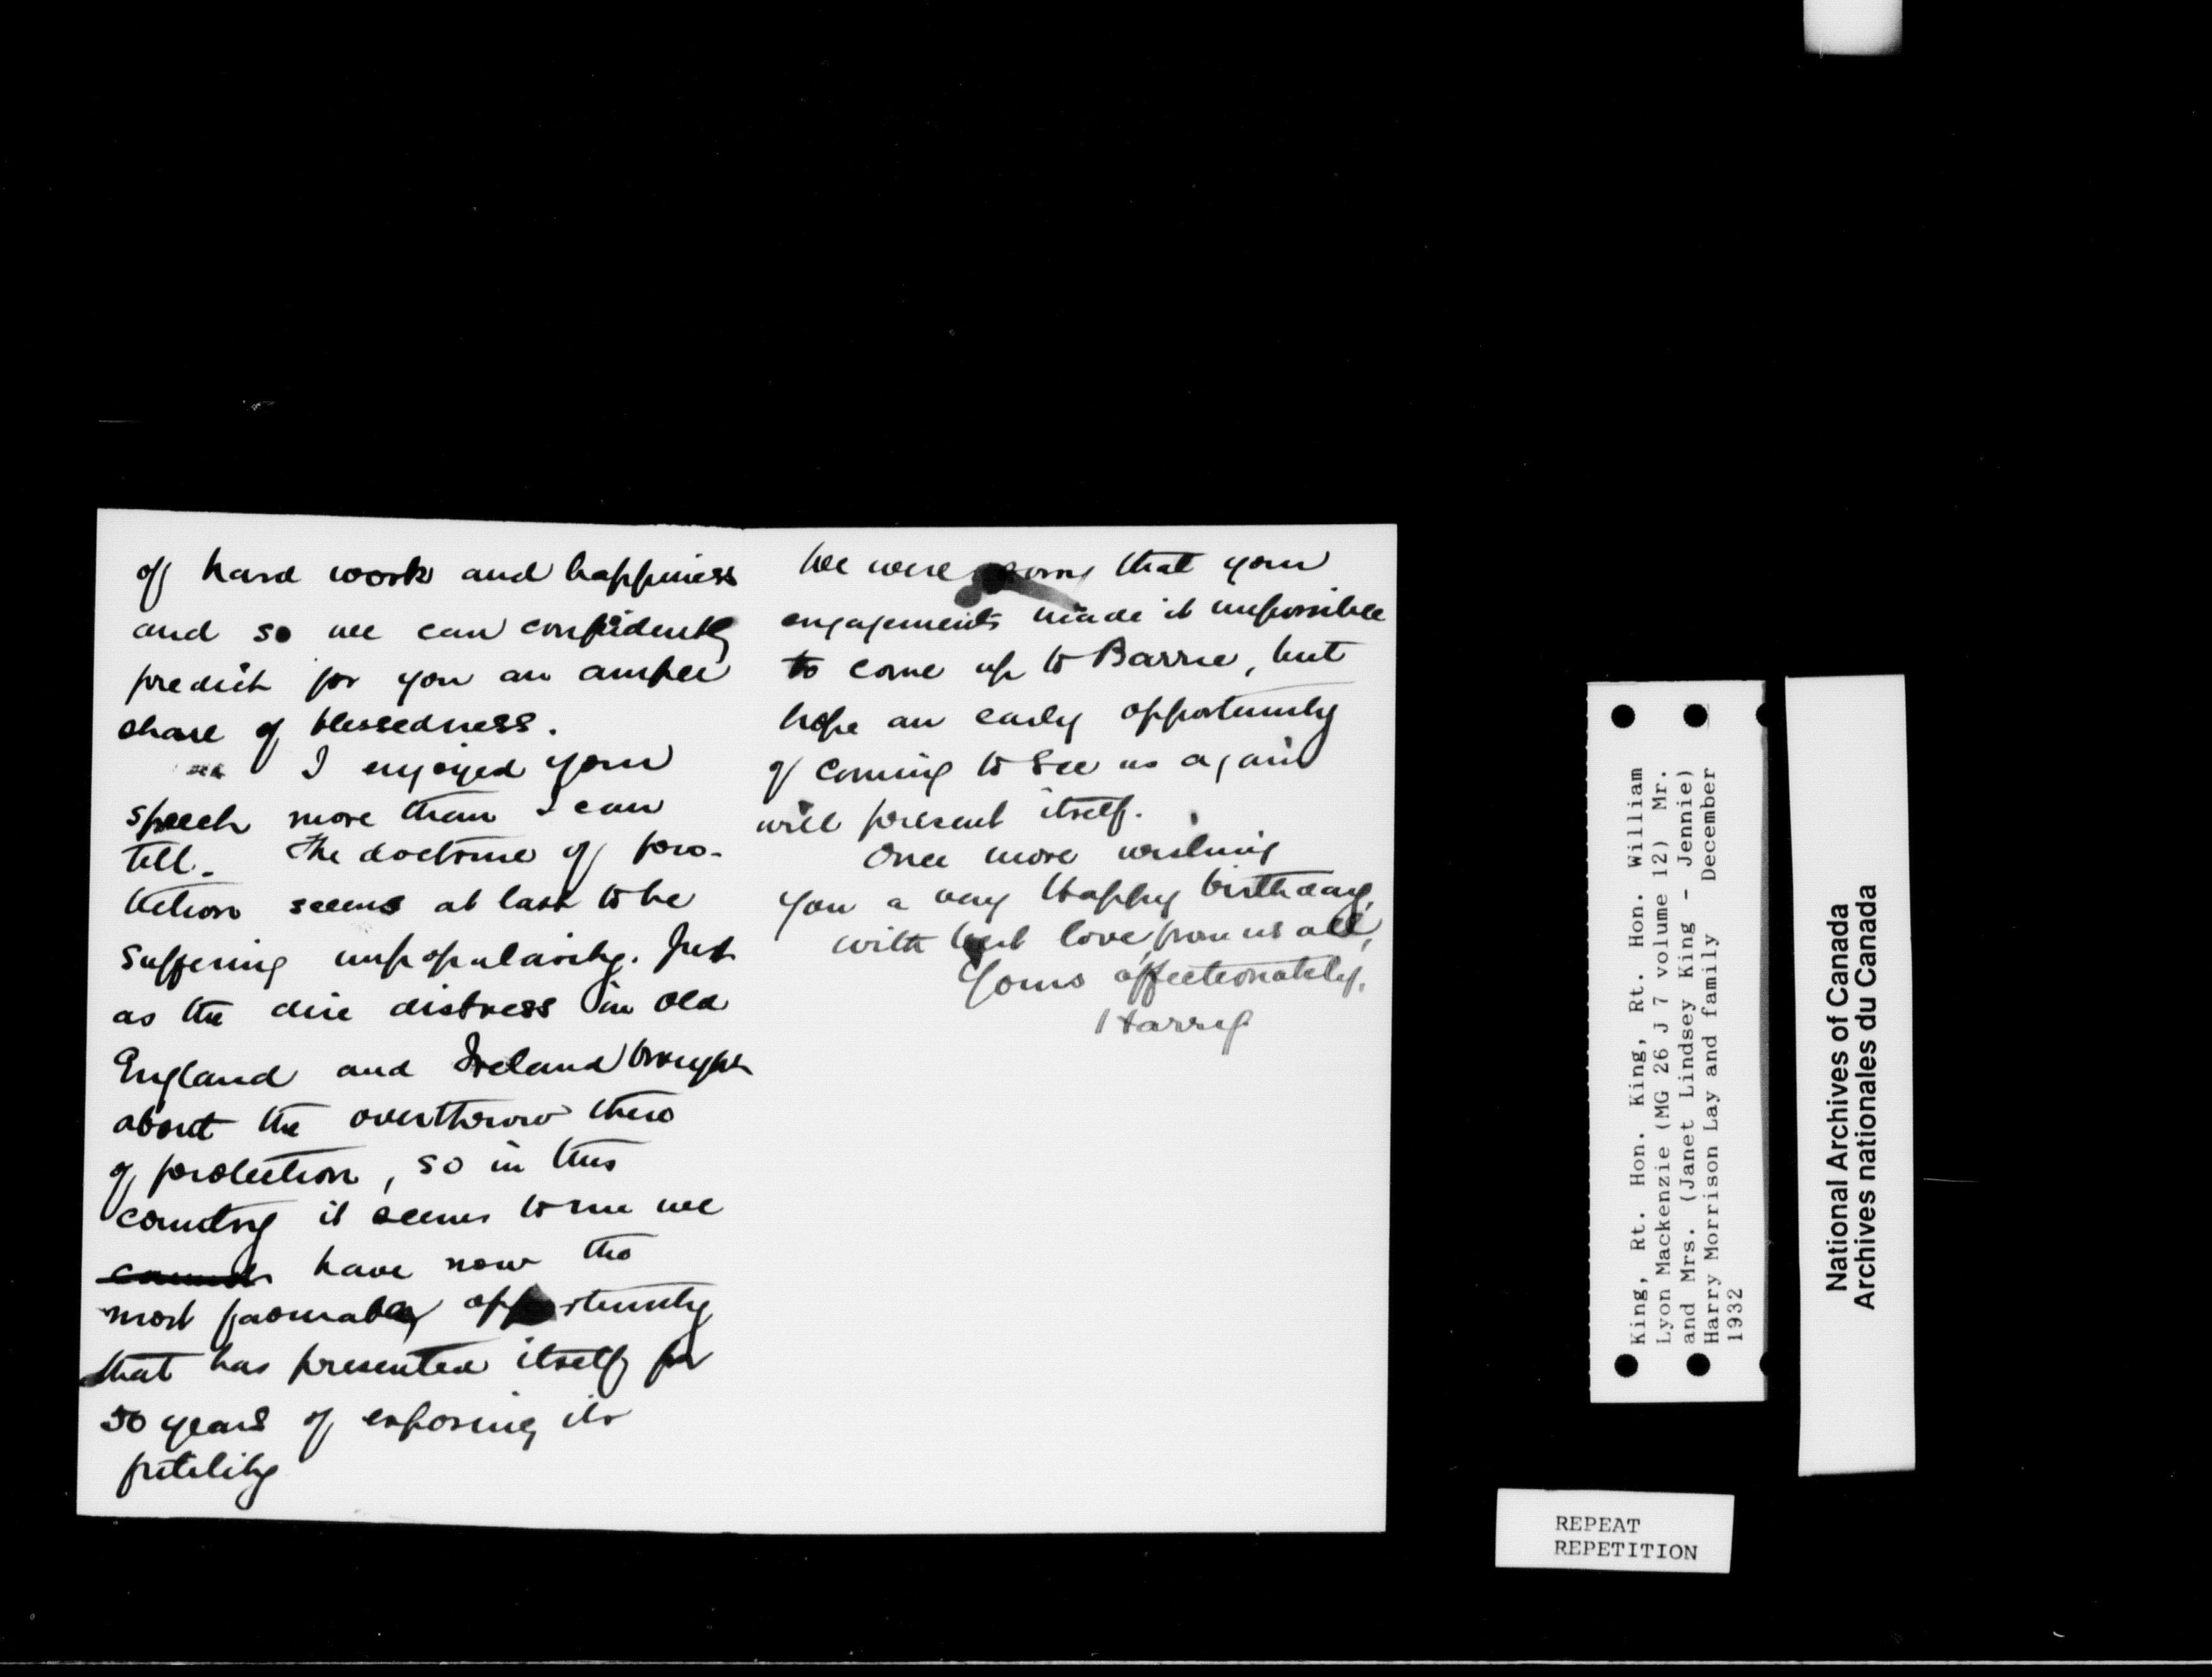 of hard work and happiness
and so we can confidently
predict for you an ample
share of blessedness.
I enjoyed your
speech more than I can
tell. The doctrine of pro-
tection seems at last to be
suffering unpopularity. Just
as the dire distress in old
England and Ireland brought
about the overthrow there
of protection, so in this
country it seems to me we
have now the
most favourable opportunity
that has presented itself for
50 years of exposing its
futility
We were sorry that your
engagements made it impossible
to come up to Barrie, but
hope an early opportunity
of coming to see us again
will present itself.
Once more wishing
you a very Happy birthday,
with best love from us all,
Yours affectionately,
Harry
King, Rt. Hon. King, Rt. Hon. William
Lyon Mackenzie (MG 26 J 7 volume 12) Mr.
and Mrs. (Janet Lindsey King - Jennie)
Harry Morrison Lay and family December
1932
National Archives of Canada
Archives nationales du Canada
REPEAT
REPETITION